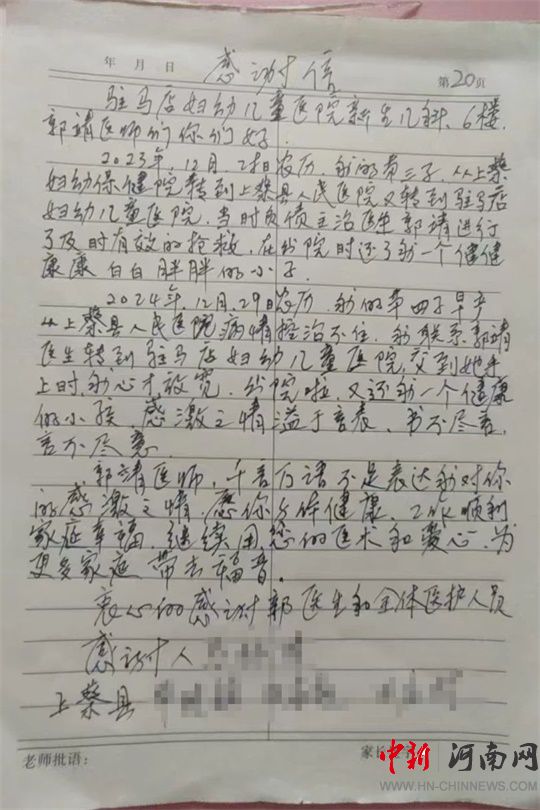 年 月 日
感谢信
第20页
驻马店妇幼儿童医院新生儿科、6楼.
郭靖医师们你们好.
2023年,12月,2日农历,我的第三子,从上蔡
妇幼保健院转到上蔡县人民医院又转到驻马店
妇幼儿童医院,当时负债主治医生郭靖进行
了及时有效的抢救,在出院时还了我一个健健
康康白白胖胖的小子.
2024年,12月,29日农历,我的第四子早产
从上蔡县人民医院病情控治不住,我联系郭靖
医生转到驻马店妇幼儿童医院,交到她手
上时,我心才放宽,出院啦,又还我一个健康
的小孩,感激之情溢于言表,书不尽言,
言不尽意.
郭靖医师,千言万语不足表达我对你
的感激之情,愿你身体健康,工作顺利
家庭幸福,继续用您的医术和爱心,为
更多家庭带去福音.
衷心的感谢郭医生和全体医护人员
感谢人
上蔡县
老师批语:
家长
中新河南网
WWW.HN-CHINNEWS.COM